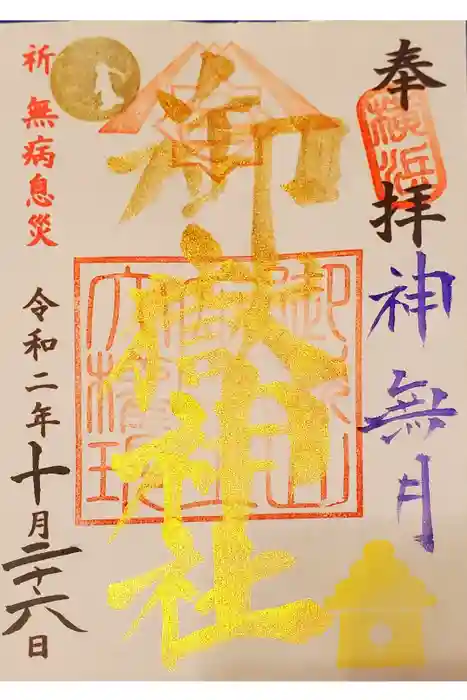 奉拝
横浜
神無月
御嶽神社
御嶽山
大權現
祈 無病息災
令和二年十月二十六日